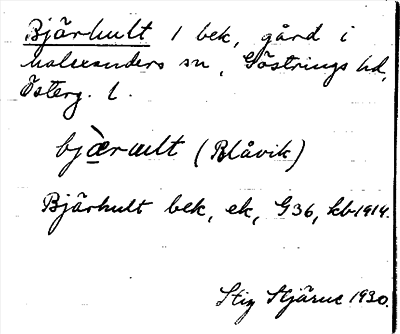 Bjärhult 1 bek, gård i
Malexanders sn, Göstrings hd,
Österg. l.
bjæ̀rult (Blåvik)
Bjärhult bek, ek, G36, kb 1914.
Stig Stjärne 1930.